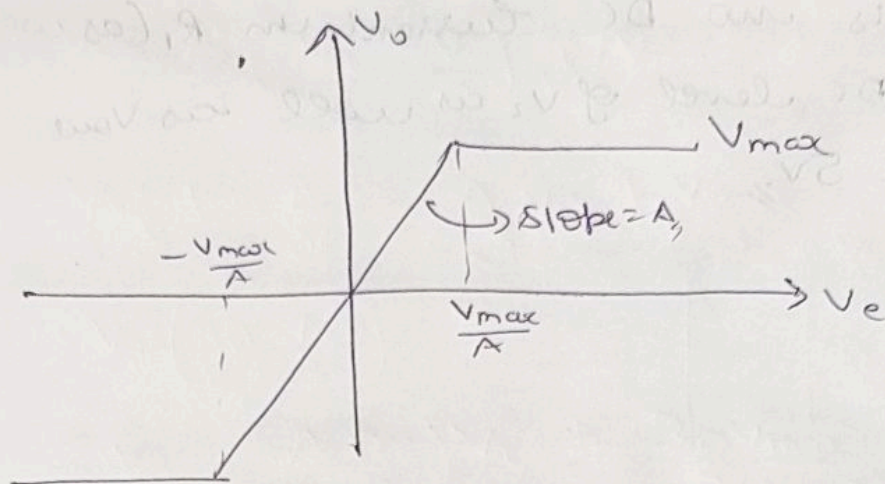 V₀
Vmax
Slope = A,,
-Vmax/A
Vmax/A
Ve